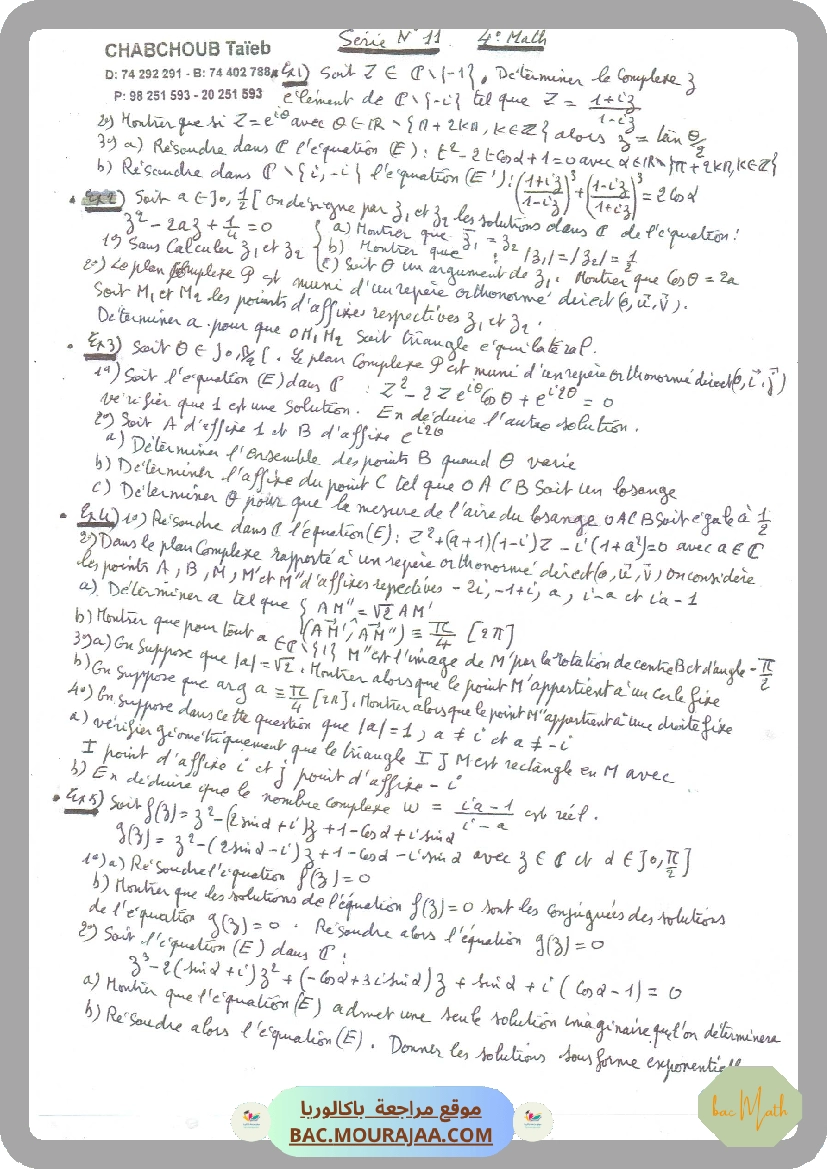 CHABCHOUB Taïeb
D: 74 292 291 - B: 74 402 788
P: 98 251 593 - 20 251 593
Série N° 11 4° Math
Ex1) Soit Z ∈ ℂ \ {-1}, Déterminer le Complexe z
élément de ℂ \ {-i} tel que Z = (1+iz)/(1-iz)
2°) Montrer que si Z = e^{iθ} avec θ ∈ ℝ \ {π + 2kπ, k ∈ ℤ} alors z = tan θ/2
3°) a) Résoudre dans ℂ l'équation (E) : t² - 2t cos α + 1 = 0 avec α ∈ ℝ \ {π + 2kπ, k ∈ ℤ}
b) Résoudre dans ℂ \ {i, -i} l'équation (E') : ((1+iz)/(1-iz))³ + ((1-iz)/(1+iz))³ = 2 cos α
Ex2) Soit a ∈ ]0, 1/2[ on désigne par z₁ et z₂ les solutions dans ℂ de l'équation :
z² - 2az + 1/4 = 0
1°) Sans Calculer z₁ et z₂
a) Montrer que z̄₁ = z₂
b) Montrer que : |z₁| = |z₂| = 1/2
c) Soit θ un argument de z₁. Montrer que cos θ = 2a
2°) Le plan Complexe P est muni d'un repère orthonormé direct (o, u⃗, v⃗).
Soit M₁ et M₂ les points d'affixes respectives z₁ et z₂.
Déterminer a pour que OM₁M₂ soit triangle équilatéral.
Ex3) Soit θ ∈ ]0, π/2[. Le plan Complexe P est muni d'un repère orthonormé direct (o, i⃗, j⃗)
1°) Soit l'équation (E) dans ℂ : Z² - 2Z e^{iθ} cos θ + e^{i2θ} = 0
vérifier que 1 est une solution. En déduire l'autre solution.
2°) Soit A d'affixe 1 et B d'affixe e^{i2θ}
a) Déterminer l'ensemble des points B quand θ varie
b) Déterminer l'affixe du point C tel que OACB soit un losange
c) Déterminer θ pour que la mesure de l'aire du losange OACB soit égale à 1/2
Ex4) 1°) Résoudre dans ℂ l'équation (E) : Z² + (a+1)(1-i)Z - i(1+a²) = 0 avec a ∈ ℂ
2°) Dans le plan Complexe rapporté à un repère orthonormé direct (o, u⃗, v⃗) on considère
les points A, B, M, M' et M'' d'affixes respectives -2i, -1+i, a, i-a et ia-1
a) Déterminer a tel que { AM'' = √2 AM'
(AM⃗', AM⃗'') ≡ π/4 [2π]
b) Montrer que pour tout a ∈ ℂ \ {1} M'' est l'image de M' par la rotation de centre B et d'angle -π/2
3°) a) On suppose que |a| = √2. Montrer alors que le point M' appartient à un cercle fixe
b) On suppose que arg a ≡ π/4 [2π]. Montrer alors que le point M'' appartient à une droite fixe
4°) On suppose dans cette question que |a| = 1, a ≠ i et a ≠ -i
a) vérifier géométriquement que le triangle IJM est rectangle en M avec
I point d'affixe i et J point d'affixe -i
b) En déduire que le nombre complexe w = (ia-1)/(i-a) est réel.
Ex5) Soit f(z) = z² - (2sin α + i)z + 1 - cos α + i sin α
g(z) = z² - (2sin α - i)z + 1 - cos α - i sin α avec z ∈ ℂ et α ∈ ]0, π/2]
1°) a) Résoudre l'équation f(z) = 0
b) Montrer que les solutions de l'équation f(z) = 0 sont les conjuguées des solutions
de l'équation g(z) = 0. Résoudre alors l'équation g(z) = 0
2°) Soit l'équation (E) dans ℂ :
z³ - 2(sin α + i)z² + (-cos α + 3i sin α)z + sin α + i(cos α - 1) = 0
a) Montrer que l'équation (E) admet une seule solution imaginaire qu'on déterminera
b) Résoudre alors l'équation (E). Donner les solutions sous forme exponentielle
موقع مراجعة باكالوريا
BAC.MOURAJAA.COM
bac Math